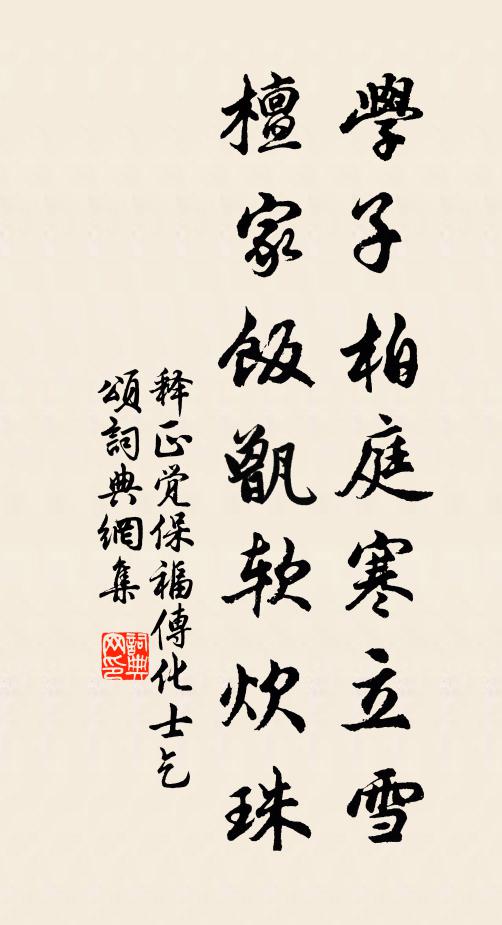 學子柏庭寒立雪
檀家飯甑軟炊珠
释正觉保福傳化士乞
頌詞典網集
詞典网印